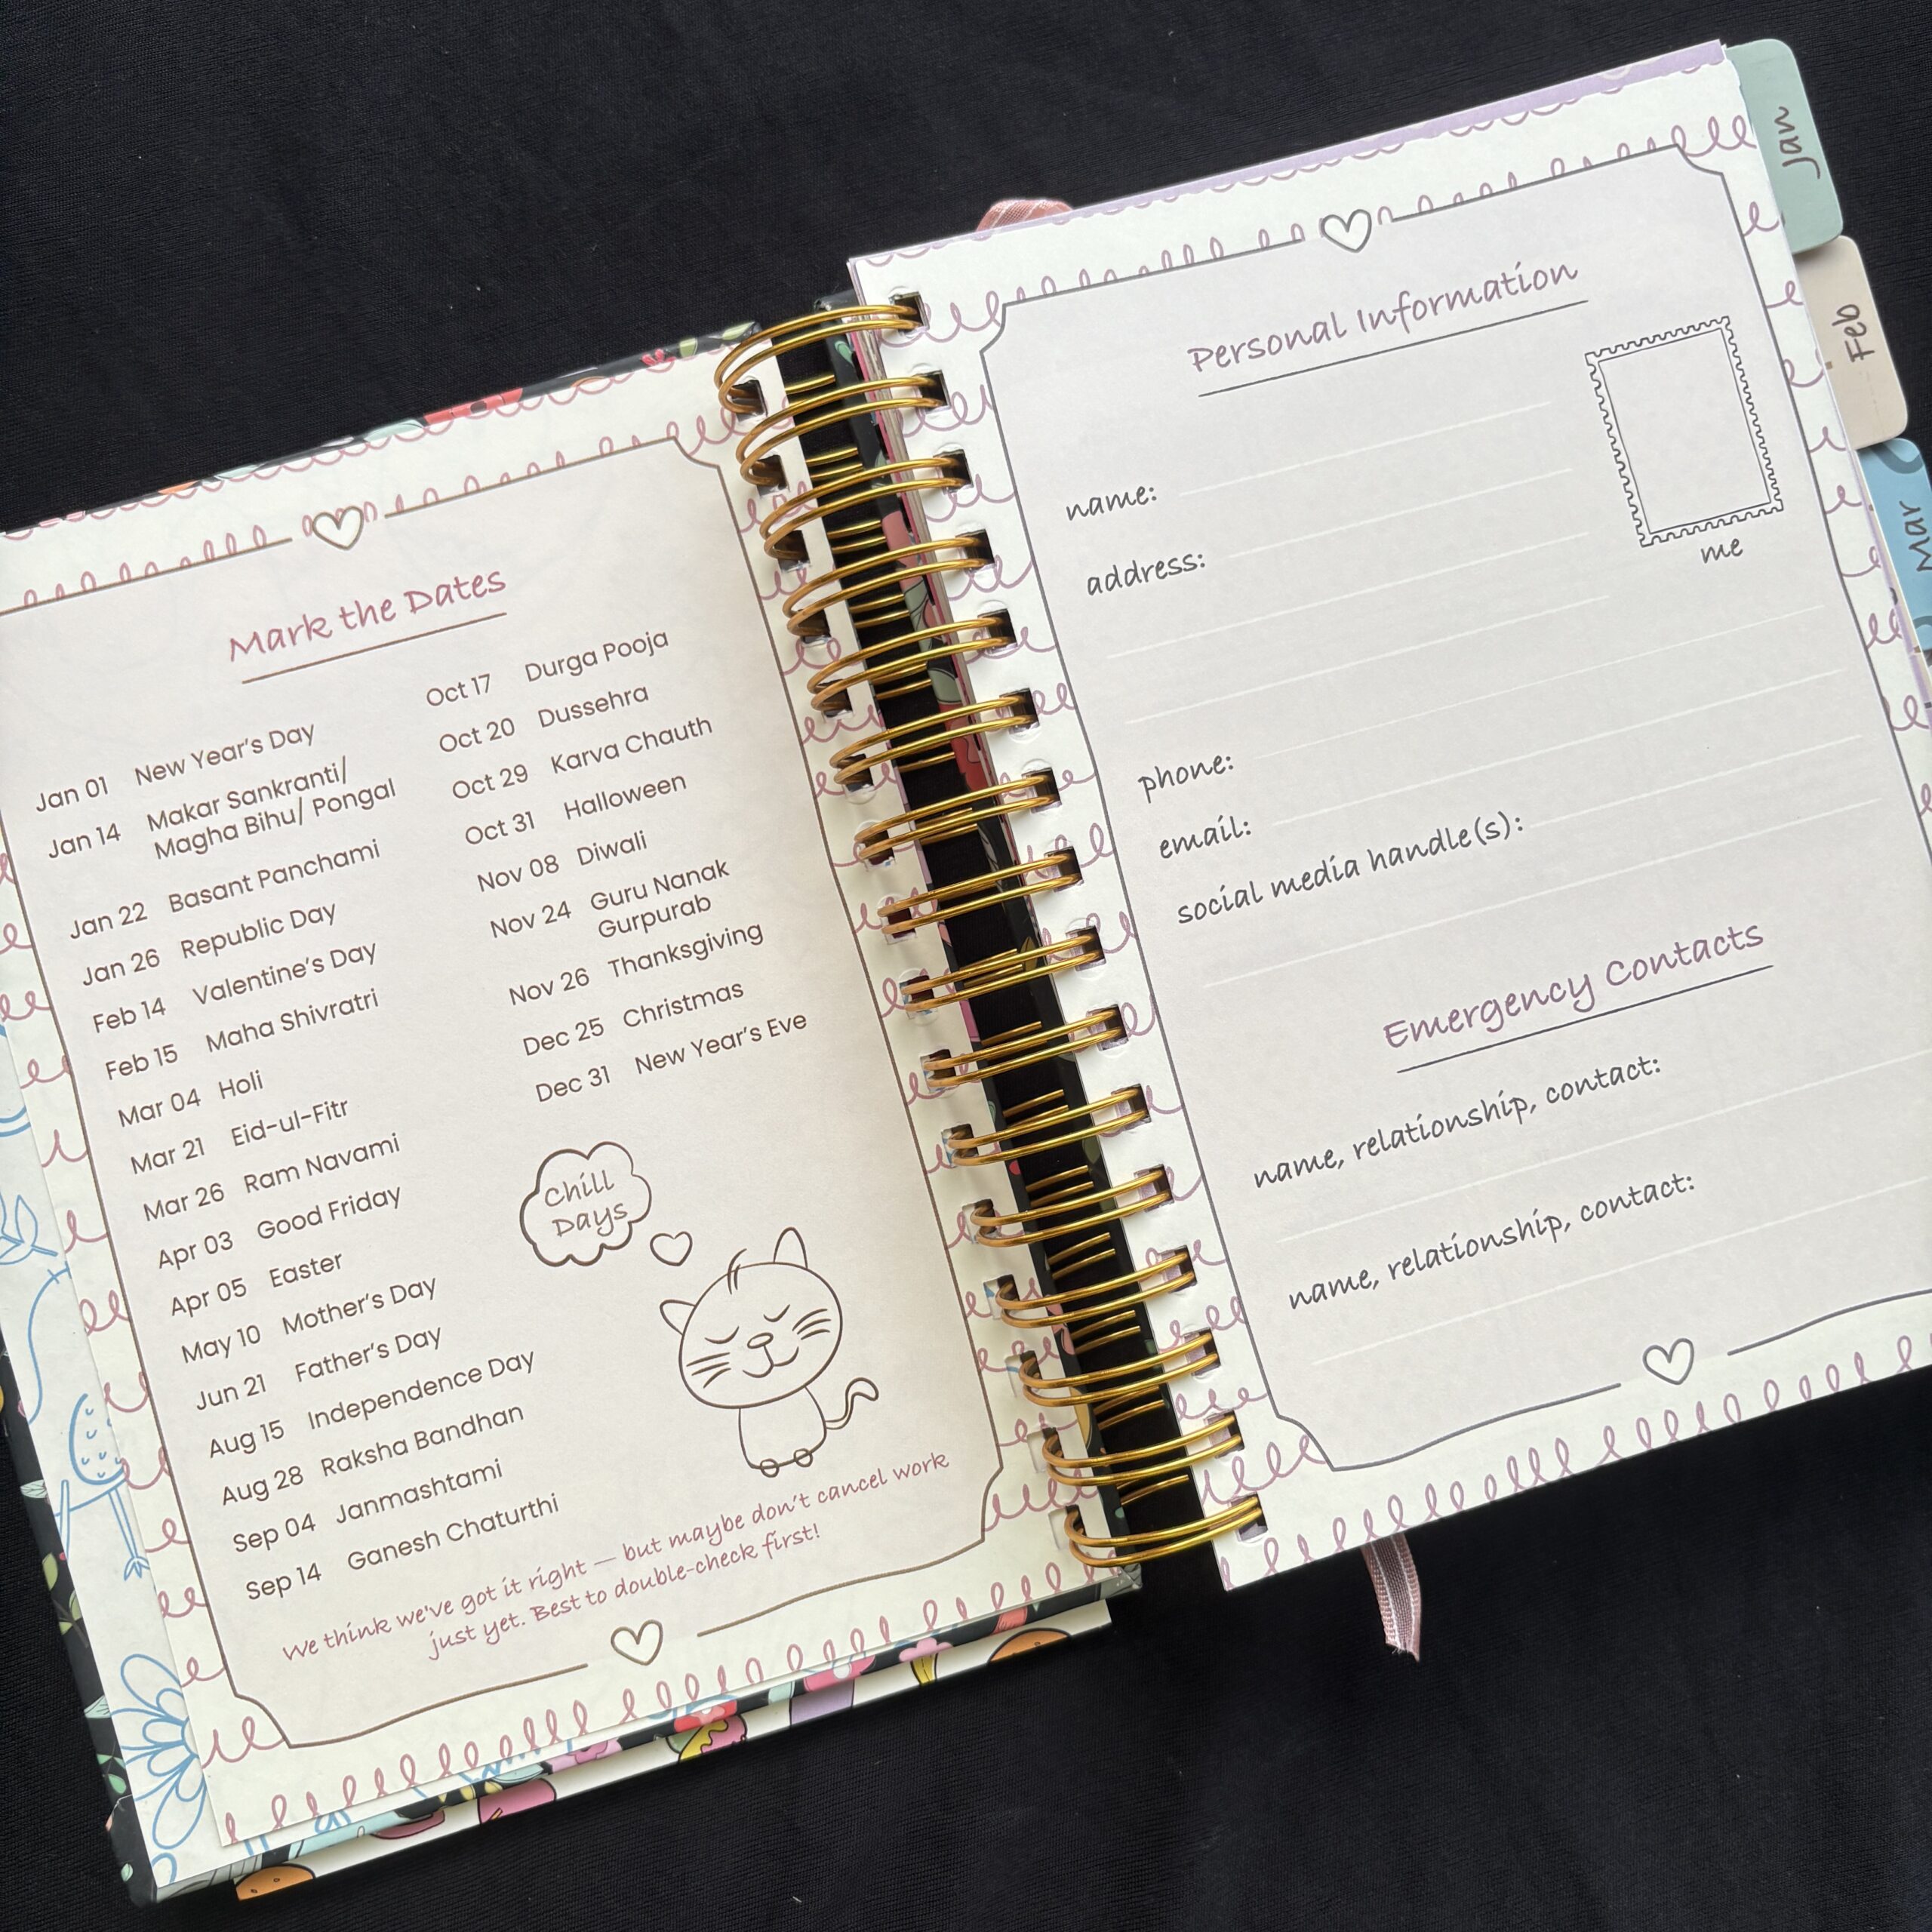 Mark the Dates
Jan 01 New Year's Day
Jan 14 Makar Sankranti/
Magha Bihu/ Pongal
Jan 22 Basant Panchami
Jan 26 Republic Day
Feb 14 Valentine's Day
Feb 15 Maha Shivratri
Mar 04 Holi
Mar 21 Eid-ul-Fitr
Mar 26 Ram Navami
Apr 03 Good Friday
Apr 05 Easter
May 10 Mother's Day
Jun 21 Father's Day
Aug 15 Independence Day
Aug 28 Raksha Bandhan
Sep 04 Janmashtami
Sep 14 Ganesh Chaturthi
Oct 17 Durga Pooja
Oct 20 Dussehra
Oct 29 Karva Chauth
Oct 31 Halloween
Nov 08 Diwali
Nov 24 Guru Nanak
Gurpurab
Nov 26 Thanksgiving
Dec 25 Christmas
Dec 31 New Year's Eve
Chill
Days
We think we've got it right — but maybe don't cancel work
just yet. Best to double-check first!
Personal Information
name:
address:
me
phone:
email:
social media handle(s):
Emergency Contacts
name, relationship, contact:
name, relationship, contact:
Jan
Feb
Mar